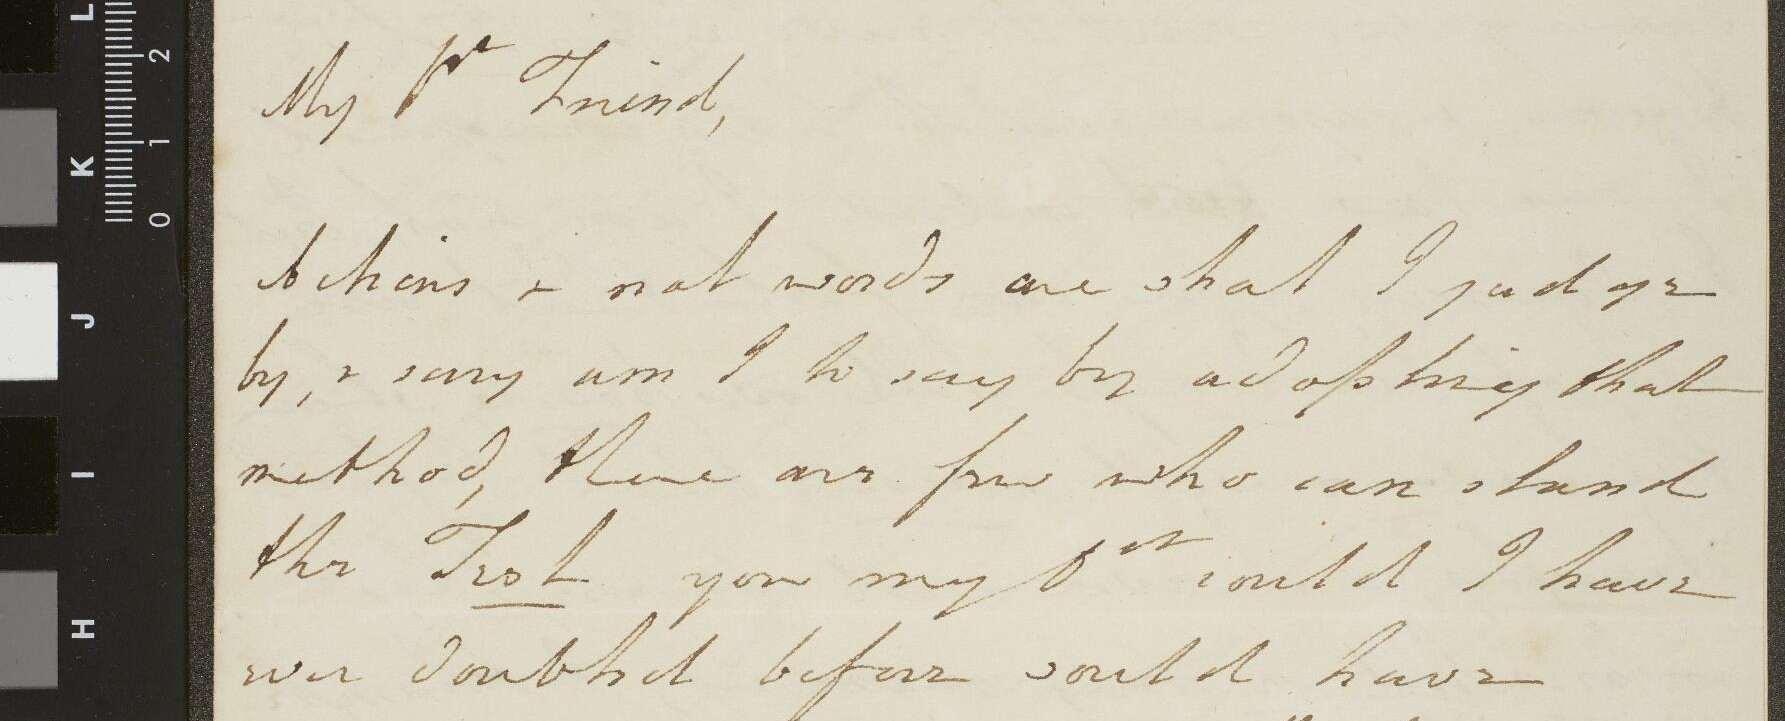 My Dr Friend,
Actions & not words are what I judge
by, & sorry am I to say by adopting that
method, there are few who can stand
the Test you my Dr could I have
ever doubted before would have
L
K
J
I
H
2
1
0